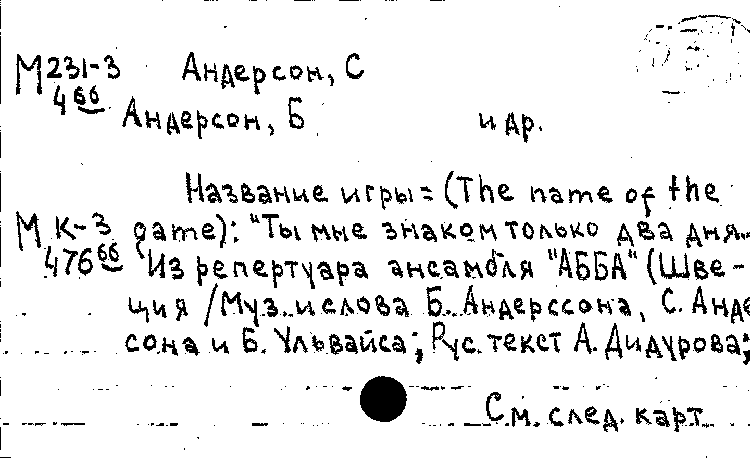 М231-3 Андерсон, С
466
Андерсон, Б и др.
Название игры = (The name of the
М К-3 game): "Ты мне знаком только два дня...
47666 Из репертуара ансамбля "АББА" (Шве-
ция / Муз. и слова Б. Андерссона, С. Анде
сона и Б. Ульвайса; Рус. текст А. Дидурова;
См. след. карт